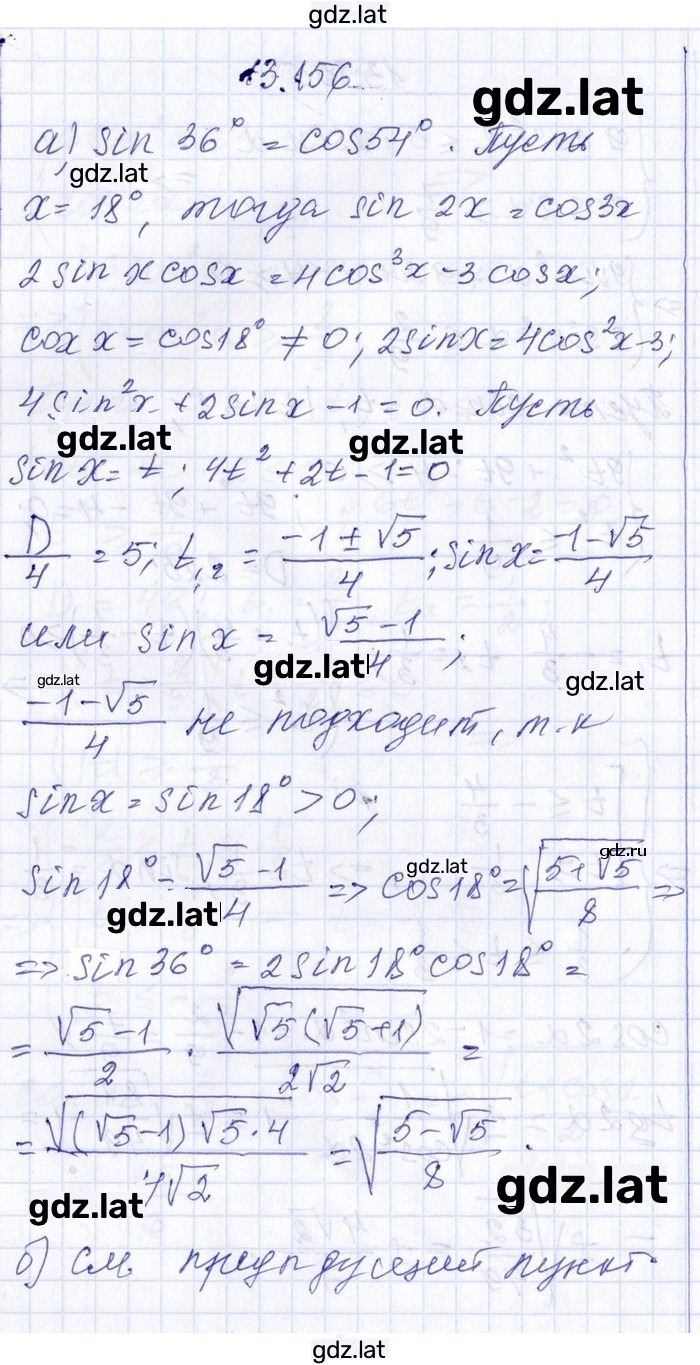 gdz.lat
13.156
gdz.lat
а) sin 36° = cos54°. Пусть
gdz.lat
x = 18°, тогда sin 2x = cos3x
2 sin x cosx = 4cos³x - 3 cosx;
cox x = cos18° ≠ 0; 2sinx = 4cos²x-3;
4sin²x + 2sinx - 1 = 0. Пусть
gdz.lat gdz.lat
sin x = t; 4t² + 2t - 1 = 0
D/4 = 5; t₁,₂ = (-1 ± √5)/4; sin x = (-1-√5)/4
или sin x = (√5 - 1)/4;
gdz.lat
gdz.lat gdz.lat
(-1-√5)/4 не подходит, т.к
sinx = sin18° > 0;
gdz.lat gdz.ru
sin18° = (√5 - 1)/4 => cos18° = √((5+√5)/8) =>
gdz.lat
=> sin36° = 2sin18°cos18° =
= (√5 - 1)/2 · √(√5(√5+1))/(2√2) =
= √((√5-1)√5·4)/(4√2) = √((5-√5)/8).
gdz.lat gdz.lat
б) см предыдущий пункт.
gdz.lat